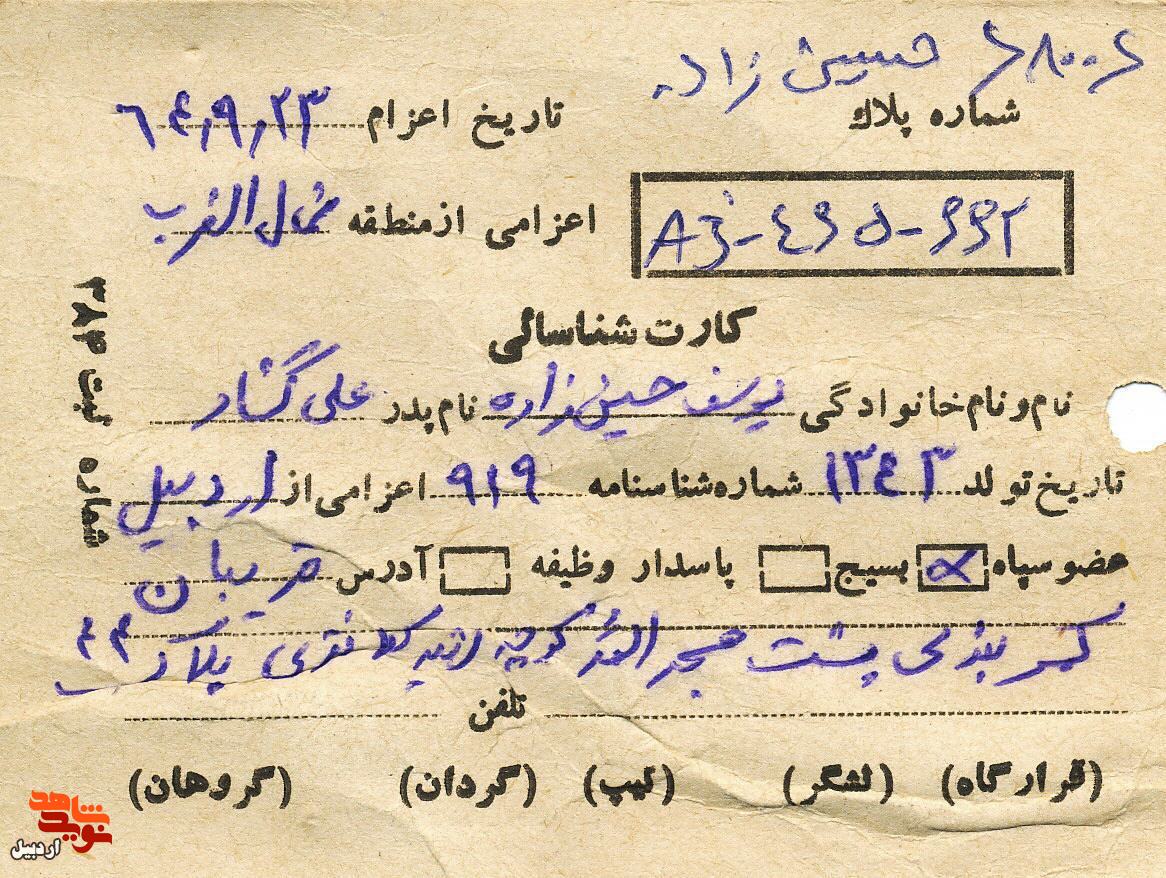 حسین زاده
شماره پلاك
تاریخ اعزام ۶۴,۹,۲۳
AJ-۴۶۵-۶۶۲
اعزامی از منطقه شمال الغرب
کارت شناسائی
نام و نام خانوادگی یوسف حسین زاده نام پدر علی گشار
تاریخ تولد ۱۳۴۳ شماره شناسنامه ۹۱۹ اعزامی از اردبیل
عضو سپاه بسیج پاسدار وظیفه آدرس
کمربندی پشت مسجد کوچه کلانتری پلاک ۴۴
تلفن
(قرارگاه) (لشگر) (تیپ) (گردان) (گروهان)
شماره ثبت ۳۸۴
نوید شاهد
اردبیل